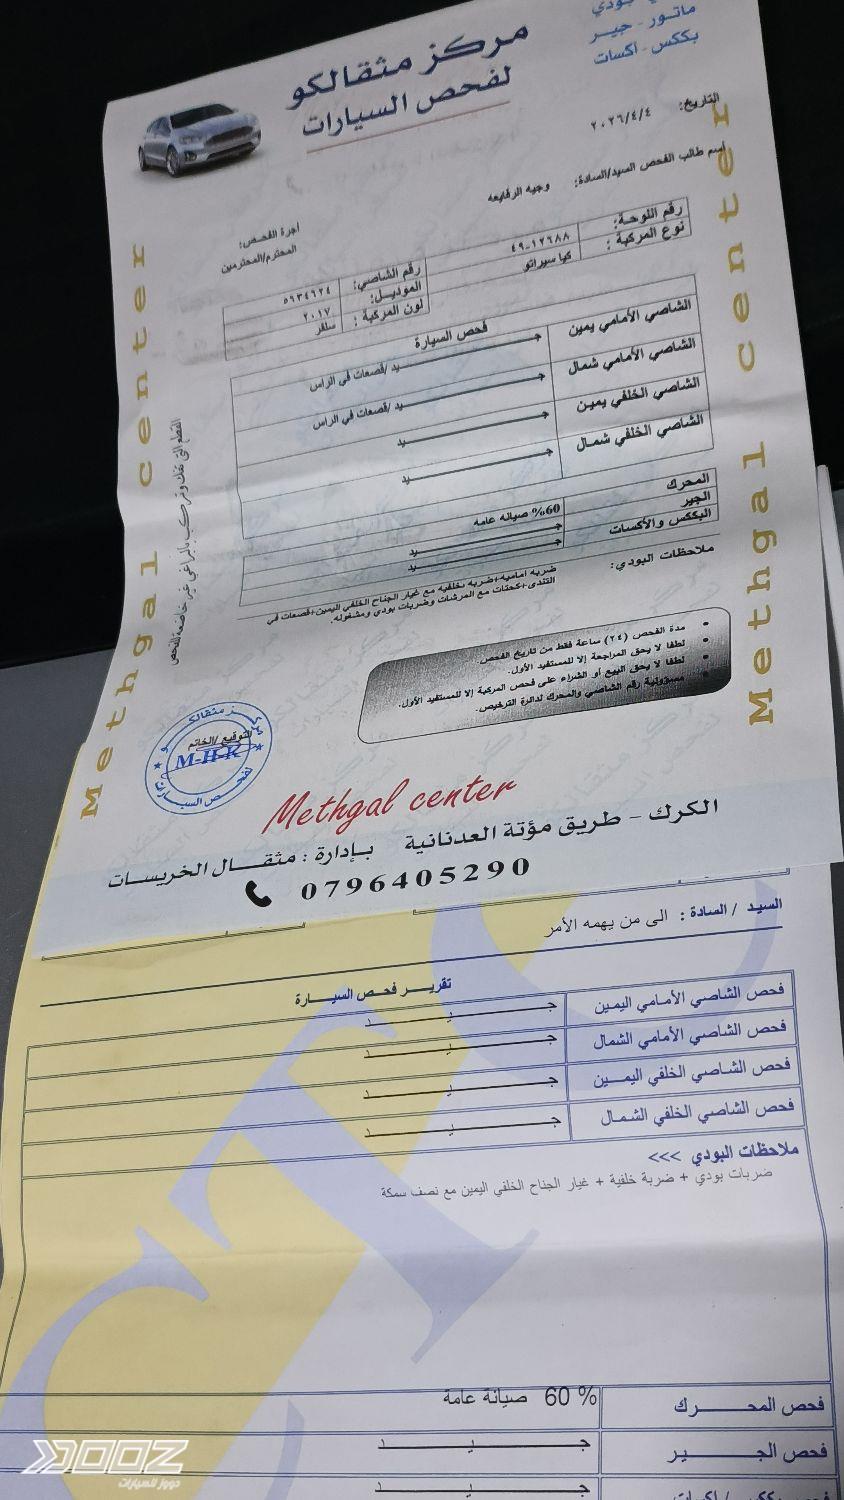 بودي
ماتور - جير
بككس - اكسات
مركز مثقالكو
لفحص السيارات
التاريخ: ٢٠٢٦/٤/٤
اسم طالب الفحص السيد/السادة: وجيه الرفايعه
اجرة الفحص:
المحترم/المحترمين
رقم اللوحة: ١٢٦٨٨-٤٩ رقم الشاصي: ٥٦٣٤٦٢٤
نوع المركبة : كيا سيراتو الموديل: ٢٠١٧
لون المركبة : سلفر
فحص السيارة
الشاصي الأمامي يمين جـــيد /قصعات في الراس
الشاصي الأمامي شمال جـــيد /قصعات في الراس
الشاصي الخلفي يمين جـــيد
الشاصي الخلفي شمال جـــيد
المحرك 60% صيانه عامه
الجير جـــيد
البككس والأكسات جـــيد
ملاحظات البودي: ضربه اماميه+ضربه خلفيه مع غيار الجناح الخلفي اليمين+قصعات في
التندى+كحتات مع المرشات وضربات بودي ومشغوله.
• مدة الفحص (٢٤) ساعة فقط من تاريخ الفحص
• لطفا لا يحق المراجعة إلا للمستفيد الأول.
• لطفا لا يحق البيع أو الشراء على فحص المركبة إلا للمستفيد الأول.
• مسؤولية رقم الشاصي والمحرك لدائرة الترخيص.
القطع التي تفك وتركب بالبراغي غير خاضعة للفحص
Methgal center
Methgal center
مركز مثقالكو
التوقيع /الخاتم
M-H-K
لفحص السيارات
Methgal center
الكرك - طريق مؤتة العدنانية بإدارة : مثقال الخريسات
0796405290
السيد / السادة : الى من يهمه الأمر
تقرير فحص السيارة
فحص الشاصي الأمامي اليمين جـــيـــد
فحص الشاصي الأمامي الشمال جـــيـــد
فحص الشاصي الخلفي اليمين جـــيـــد
فحص الشاصي الخلفي الشمال جـــيـــد
ملاحظات البودي >>>
ضربات بودي + ضربة خلفية + غيار الجناح الخلفي اليمين مع نصف سمكة
فحص المحرك 60 % صيانة عامة
فحص الجير جـــيـــد
جـــيـــد
CTC
دووز للسيارات